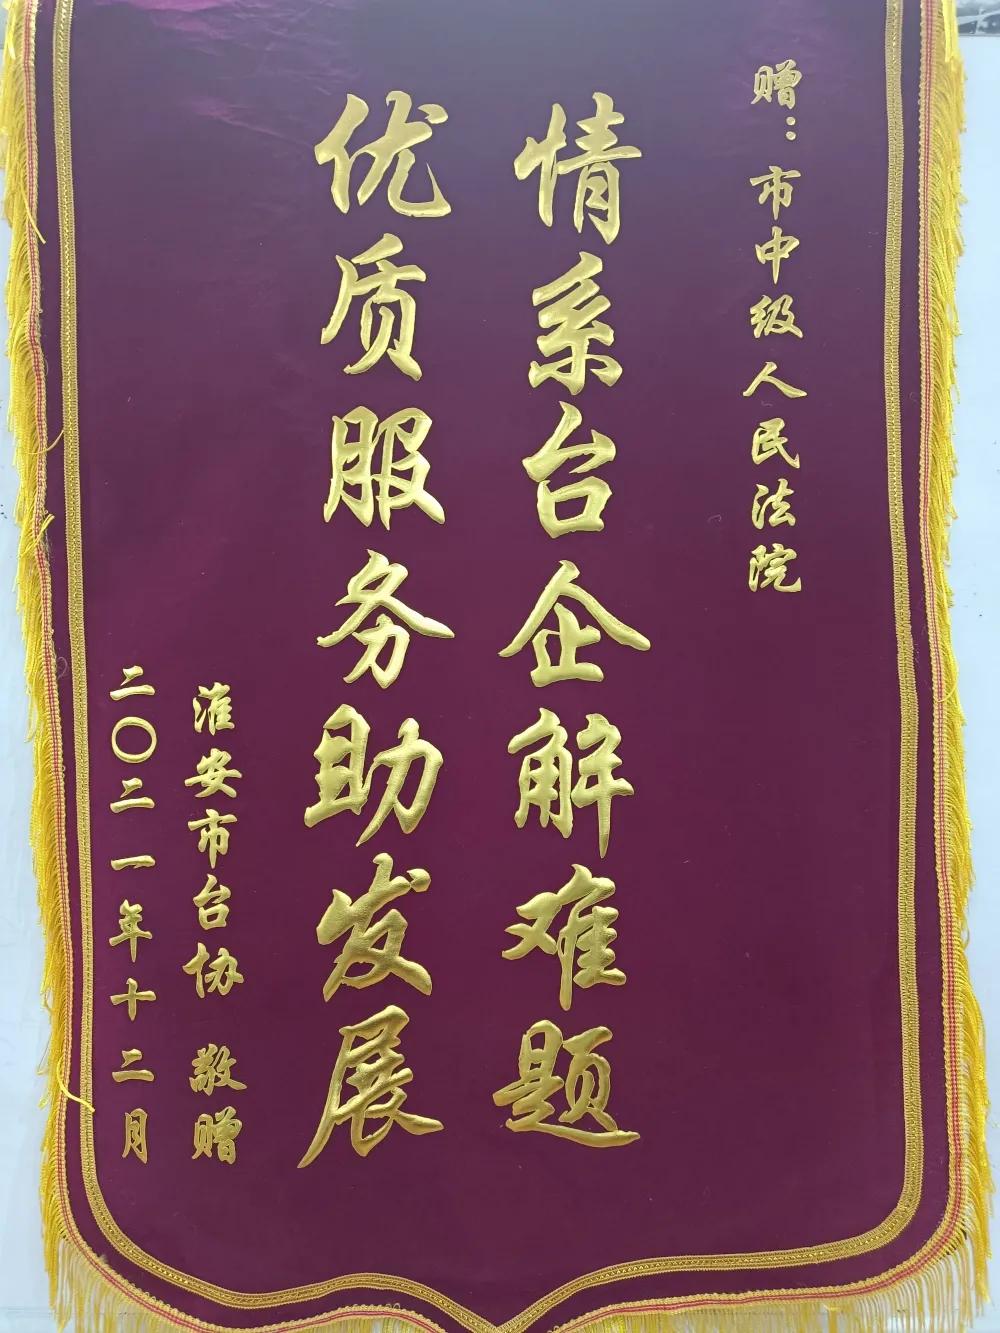 赠：市中级人民法院
情系台企解难题
优质服务助发展
淮安市台协 敬赠
二〇二一年十二月